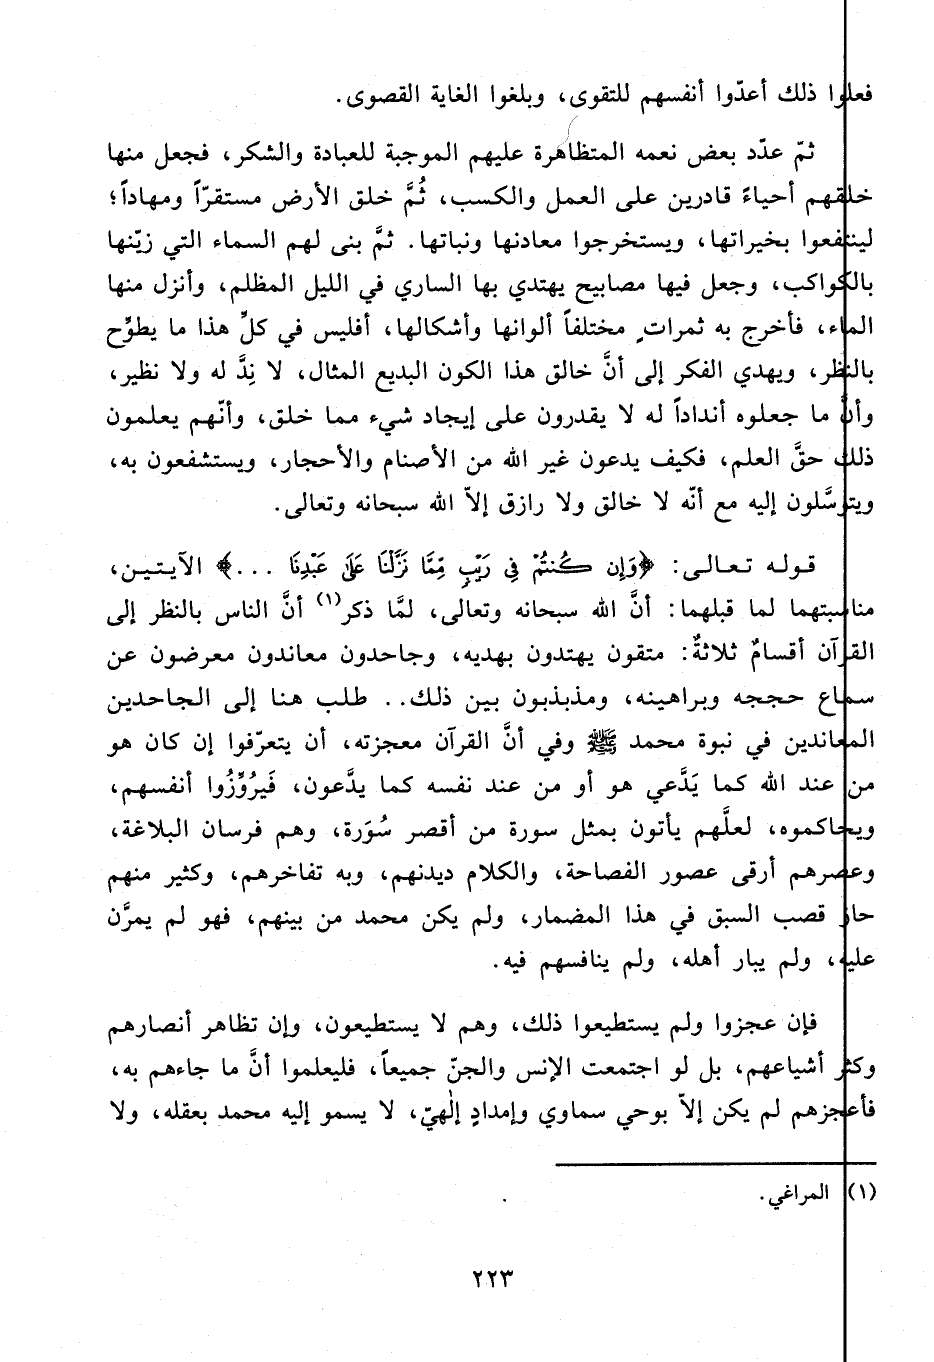 فعلوا ذلك أعدّوا أنفسهم للتقوى، وبلغوا الغاية القصوى.
ثمّ عدّد بعض نعمه المتظاهرة عليهم الموجبة للعبادة والشكر، فجعل منها
خلقهم أحياءً قادرين على العمل والكسب، ثُمَّ خلق الأرض مستقرّاً ومهاداً؛
لينتفعوا بخيراتها، ويستخرجوا معادنها ونباتها. ثمَّ بنى لهم السماء التي زيّنها
بالكواكب، وجعل فيها مصابيح يهتدي بها الساري في الليل المظلم، وأنزل منها
الماء، فأخرج به ثمراتٍ مختلفاً ألوانها وأشكالها، أفليس في كلِّ هذا ما يطوِّح
بالنظر، ويهدي الفكر إلى أنَّ خالق هذا الكون البديع المثال، لا نِدَّ له ولا نظير،
وأنَّ ما جعلوه أنداداً له لا يقدرون على إيجاد شيء مما خلق، وأنّهم يعلمون
ذلك حقَّ العلم، فكيف يدعون غير الله من الأصنام والأحجار، ويستشفعون به،
ويتوسَّلون إليه مع أنّه لا خالق ولا رازق إلاّ الله سبحانه وتعالى.
قوله تعالى: ﴿وَإِن كُنتُمْ فِي رَيْبٍ مِّمَّا نَزَّلْنَا عَلَىٰ عَبْدِنَا ...﴾ الآيتين،
مناسبتهما لما قبلهما: أنَّ الله سبحانه وتعالى، لمَّا ذكر(١) أنَّ الناس بالنظر إلى
القرآن أقسامٌ ثلاثةٌ: متقون يهتدون بهديه، وجاحدون معاندون معرضون عن
سماع حججه وبراهينه، ومذبذبون بين ذلك.. طلب هنا إلى الجاحدين
المعاندين في نبوة محمد ﷺ وفي أنَّ القرآن معجزته، أن يتعرّفوا إن كان هو
من عند الله كما يَدَّعي هو أو من عند نفسه كما يدَّعون، فَيُرَوِّزُوا أنفسهم،
ويحاكموه، لعلَّهم يأتون بمثل سورة من أقصر سُوَرة، وهم فرسان البلاغة،
وعصرهم أرقى عصور الفصاحة، والكلام ديدنهم، وبه تفاخرهم، وكثير منهم
حاز قصب السبق في هذا المضمار، ولم يكن محمد من بينهم، فهو لم يمرَّن
عليه، ولم يبار أهله، ولم ينافسهم فيه.
فإن عجزوا ولم يستطيعوا ذلك، وهم لا يستطيعون، وإن تظاهر أنصارهم
وكثر أشياعهم، بل لو اجتمعت الإنس والجنّ جميعاً، فليعلموا أنَّ ما جاءهم به،
فأعجزهم لم يكن إلاّ بوحي سماوي وإمدادٍ إلٰهيّ، لا يسمو إليه محمد بعقله، ولا
(١) المراغي.
٢٢٣